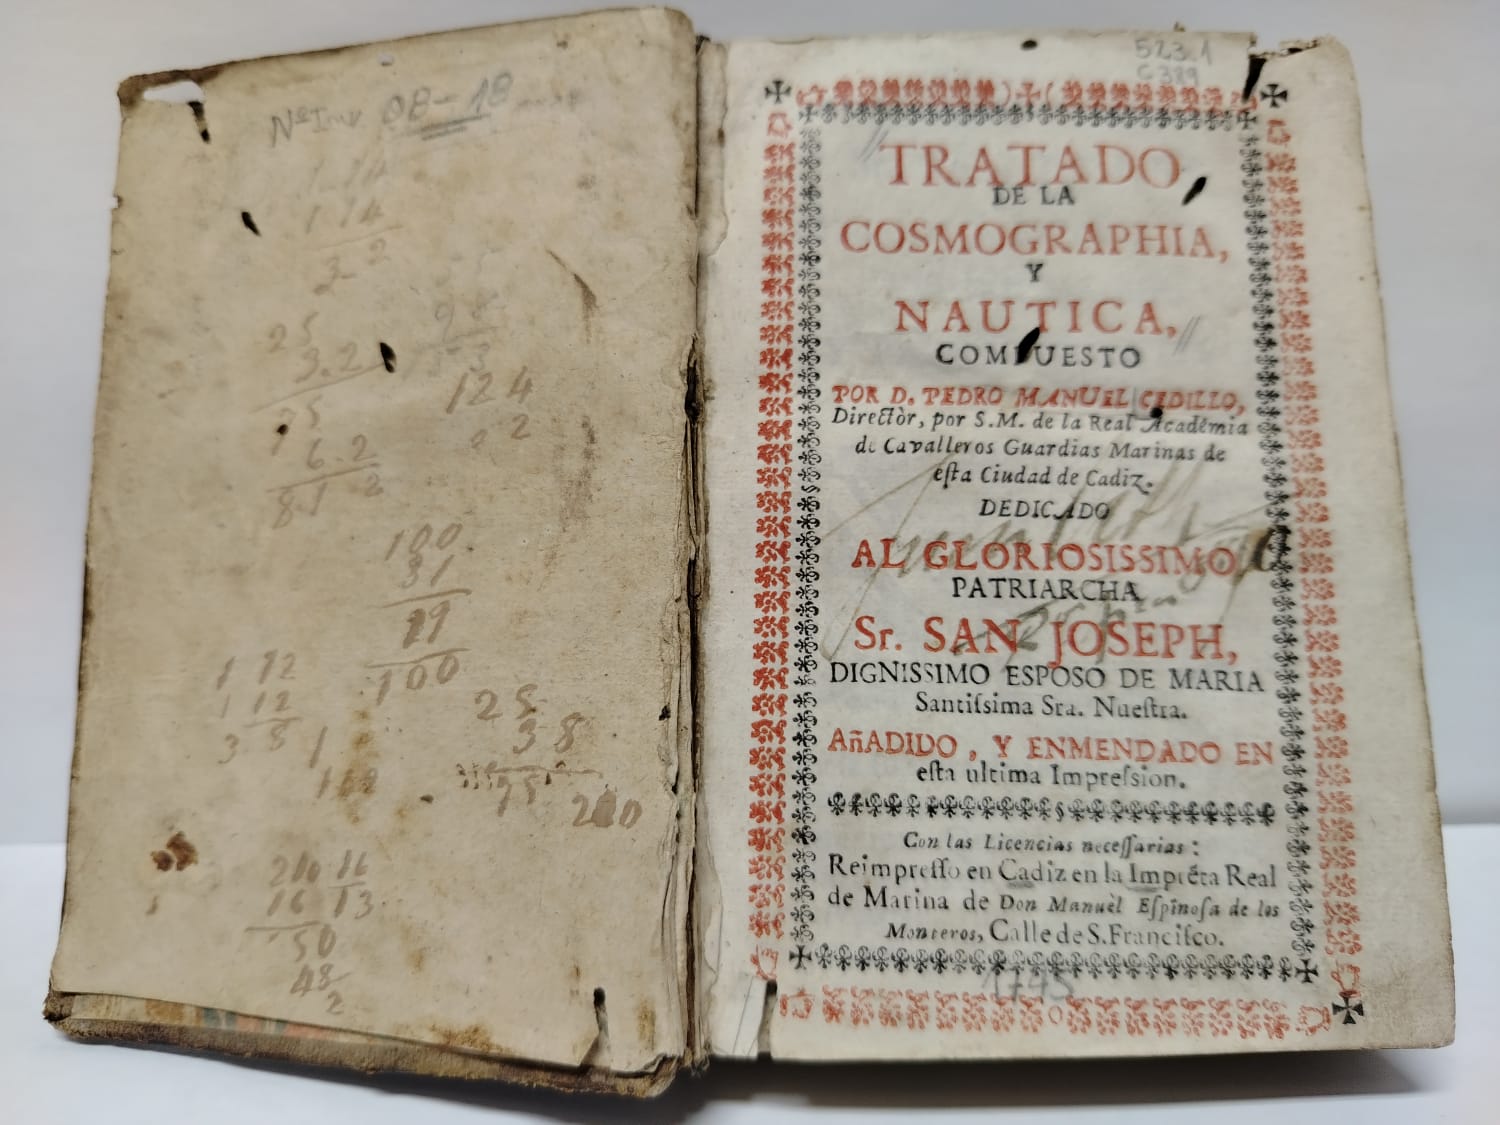 Nº Inv 08-18
1 14
1 14
3 2
25
3.2
75
6.2
81 2
124
2
100
81
19
100
1 12
1 12
3 8
25
38
75
200
210 16
16 13
50
48
2
523.1
C389
TRATADO
DE LA
COSMOGRAPHIA,
Y
NAUTICA,
COMPUESTO
POR D. PEDRO MANUEL CEDILLO,
Directòr, por S.M. de la Real Acadêmia
de Cavalleros Guardias Marinas de
eſta Ciudad de Cadiz.
DEDICADO
AL GLORIOSISSIMO
PATRIARCHA
Sr. SAN JOSEPH,
DIGNISSIMO ESPOSO DE MARIA
Santiſsima Sra. Nueſtra.
AñADIDO, Y ENMENDADO EN
eſta ultima Impreſsion.
Con las Licencias neceſſarias:
Reimpreſſo en Cadiz en la Imprẽta Real
de Marina de Don Manuèl Eſpinoſa de los
Monteros, Calle de S. Franciſco.
1745